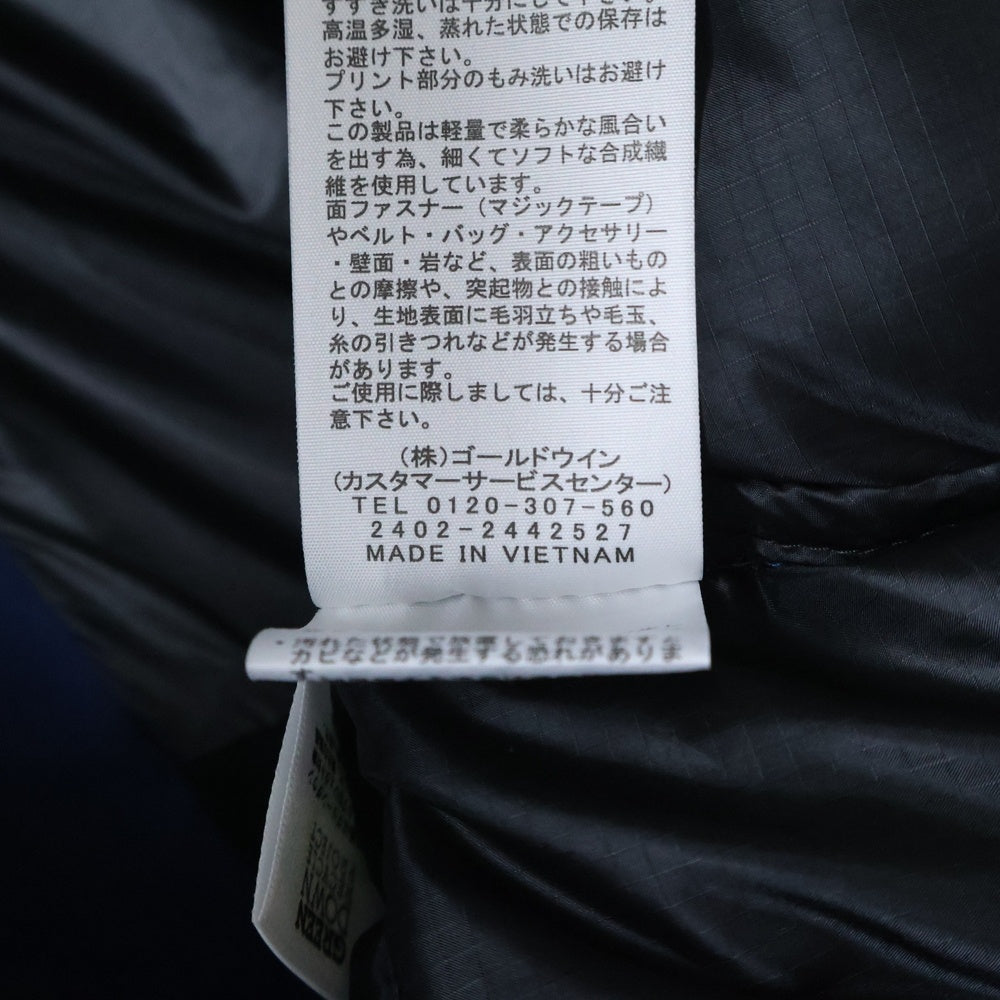 すすぎ洗いは十分にして下さい。
高温多湿、蒸れた状態での保存は
お避け下さい。
プリント部分のもみ洗いはお避け
下さい。
この製品は軽量で柔らかな風合い
を出す為、細くてソフトな合成繊
維を使用しています。
面ファスナー（マジックテープ）
やベルト・バッグ・アクセサリー
・壁面・岩など、表面の粗いもの
との摩擦や、突起物との接触によ
り、生地表面に毛羽立ちや毛玉、
糸の引きつれなどが発生する場合
があります。
ご使用に際しましては、十分ご注
意下さい。
（株）ゴールドウイン
（カスタマーサービスセンター）
TEL 0120-307-560
2402-2442527
MADE IN VIETNAM
カビなどが発生する恐れがありま
GREEN
DOWN